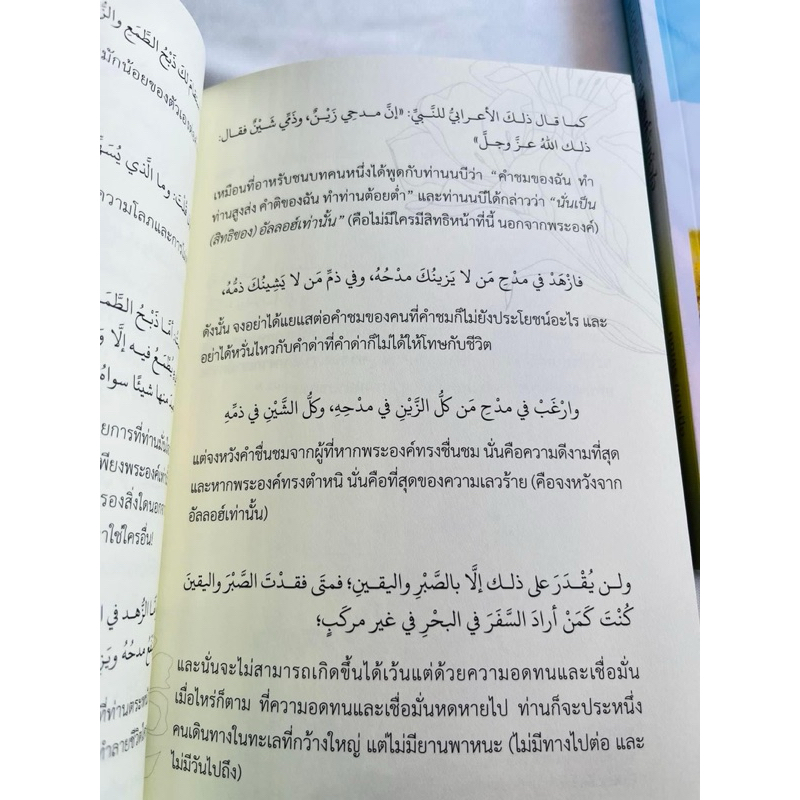 كما قال ذلك الأعرابيُّ للنَّبيِّ: «إنَّ مدحِي زَيْنٌ، وذَمِّي شَيْنٌ فقال:
ذلك اللهُ عزَّ وجلَّ»
เหมือนที่อาหรับชนบทคนหนึ่งได้พูดกับท่านนบีว่า “คำชมของฉัน ทำ
ท่านสูงส่ง คำติของฉัน ทำท่านต้อยต่ำ” และท่านนบีได้กล่าวว่า “นั่นเป็น
(สิทธิของ) อัลลอฮ์เท่านั้น” (คือไม่มีใครมีสิทธิหน้าที่นี้ นอกจากพระองค์)
فازْهَدْ في مدْحِ مَن لا يَزينُكَ مدْحُهُ، وفي ذمِّ مَن لا يَشِينُكَ ذمُّهُ،
ดังนั้น จงอย่าได้แยแสต่อคำชมของคนที่คำชมก็ไม่ยังประโยชน์อะไร และ
อย่าได้หวั่นไหวกับคำด่าที่คำด่าก็ไม่ได้ให้โทษกับชีวิต
وارْغَبْ في مدْحِ مَن كلُّ الزَّيْنِ في مدْحِهِ، وكلُّ الشَّيْنِ في ذمِّهِ
แต่จงหวังคำชื่นชมจากผู้ที่หากพระองค์ทรงชื่นชม นั่นคือความดีงามที่สุด
และหากพระองค์ทรงตำหนิ นั่นคือที่สุดของความเลวร้าย (คือจงหวังจาก
อัลลอฮ์เท่านั้น)
ولن يُقْدَرَ على ذلك إلَّا بالصَّبْرِ واليقينِ؛ فمتَى فقدْتَ الصَّبْرَ واليقينَ
كُنْتَ كمَنْ أرادَ السَّفَرَ في البحْرِ في غير مركَبٍ؛
และนั่นจะไม่สามารถเกิดขึ้นได้เว้นแต่ด้วยความอดทนและเชื่อมั่น
เมื่อไหร่ก็ตาม ที่ความอดทนและเชื่อมั่นหดหายไป ท่านก็จะประหนึ่ง
คนเดินทางในทะเลที่กว้างใหญ่ แต่ไม่มียานพาหนะ (ไม่มีทางไปต่อ และ
ไม่มีวันไปถึง)